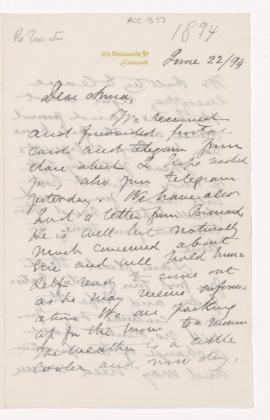 ACC. 877
1894
University St
Montreal
June 22/94
Dear Anna,
We received
and forwarded postal
card and telegram from
Clare which I hope reached
you, also your telegram
yesterday. We have also
had a letter from Bernard
He is well but naturally
much concerned about
Eric and will hold him
self ready to come out
as he may receive inform
ation. We are packing
up for the move to
The weather is a little
cooler and now dry.